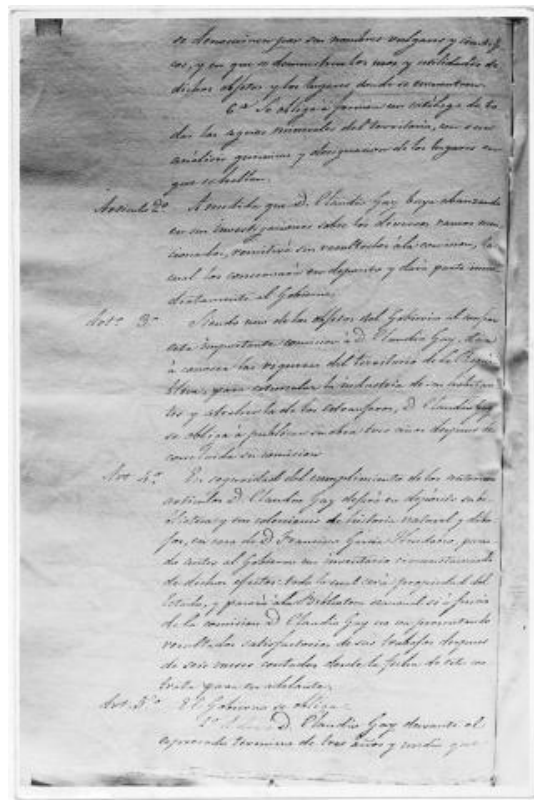 se denominen por sus nombres vulgares y científi-
cos, y en que se demuestren los usos y utilidades de
dichos objetos y los lugares donde se encuentran.
6ª Se obliga a formar un catálogo de to-
das las aguas minerales del territorio, con sus
análisis químicos y designacion de los lugares en
que se hallan.
Articulo 2º. A medida que D. Claudio Gay baya abanzando
en sus investigaciones sobre los diversos ramos men-
cionados, remitirá sus resultados á la comision, la
cual los conservará en deposito y dará parte inme-
diatamente al Gobierno.
Arto. 3º Siendo uno de los objetos del Gobierno al
esta importante comision á D. Claudio Gay, dar
á conocer las riquezas del territorio de la Repú-
blica, para estimular la industria de sus habitan-
tes y atraer la de los estranjeros, D. Claudio Gay
se obliga á publicar su obra tres años despues de
concluida su comision
Art. 4º En seguridad del cumplimiento de los
articulos D. Claudio Gay dejará en depósito su bi-
blioteca y sus colecciones de historia natural y dibu-
jos, en casa de D. Francisco Garcia Huidobro, pasan-
do antes al Gobierno un inventario circunstanciado
de dichos efectos: todo lo cual será propiedad del
Estado, y pasará á la Biblioteca nacional si á juicio
de la comision D. Claudio Gay no presentando
resultados satisfactorios de sus trabajos despues
de seis meses contados desde la fecha de esta con-
trata para en adelante.
Art. 5º El Gobierno se obliga
1º D. Claudio Gay durante el
espresado termino de tres años y medio que